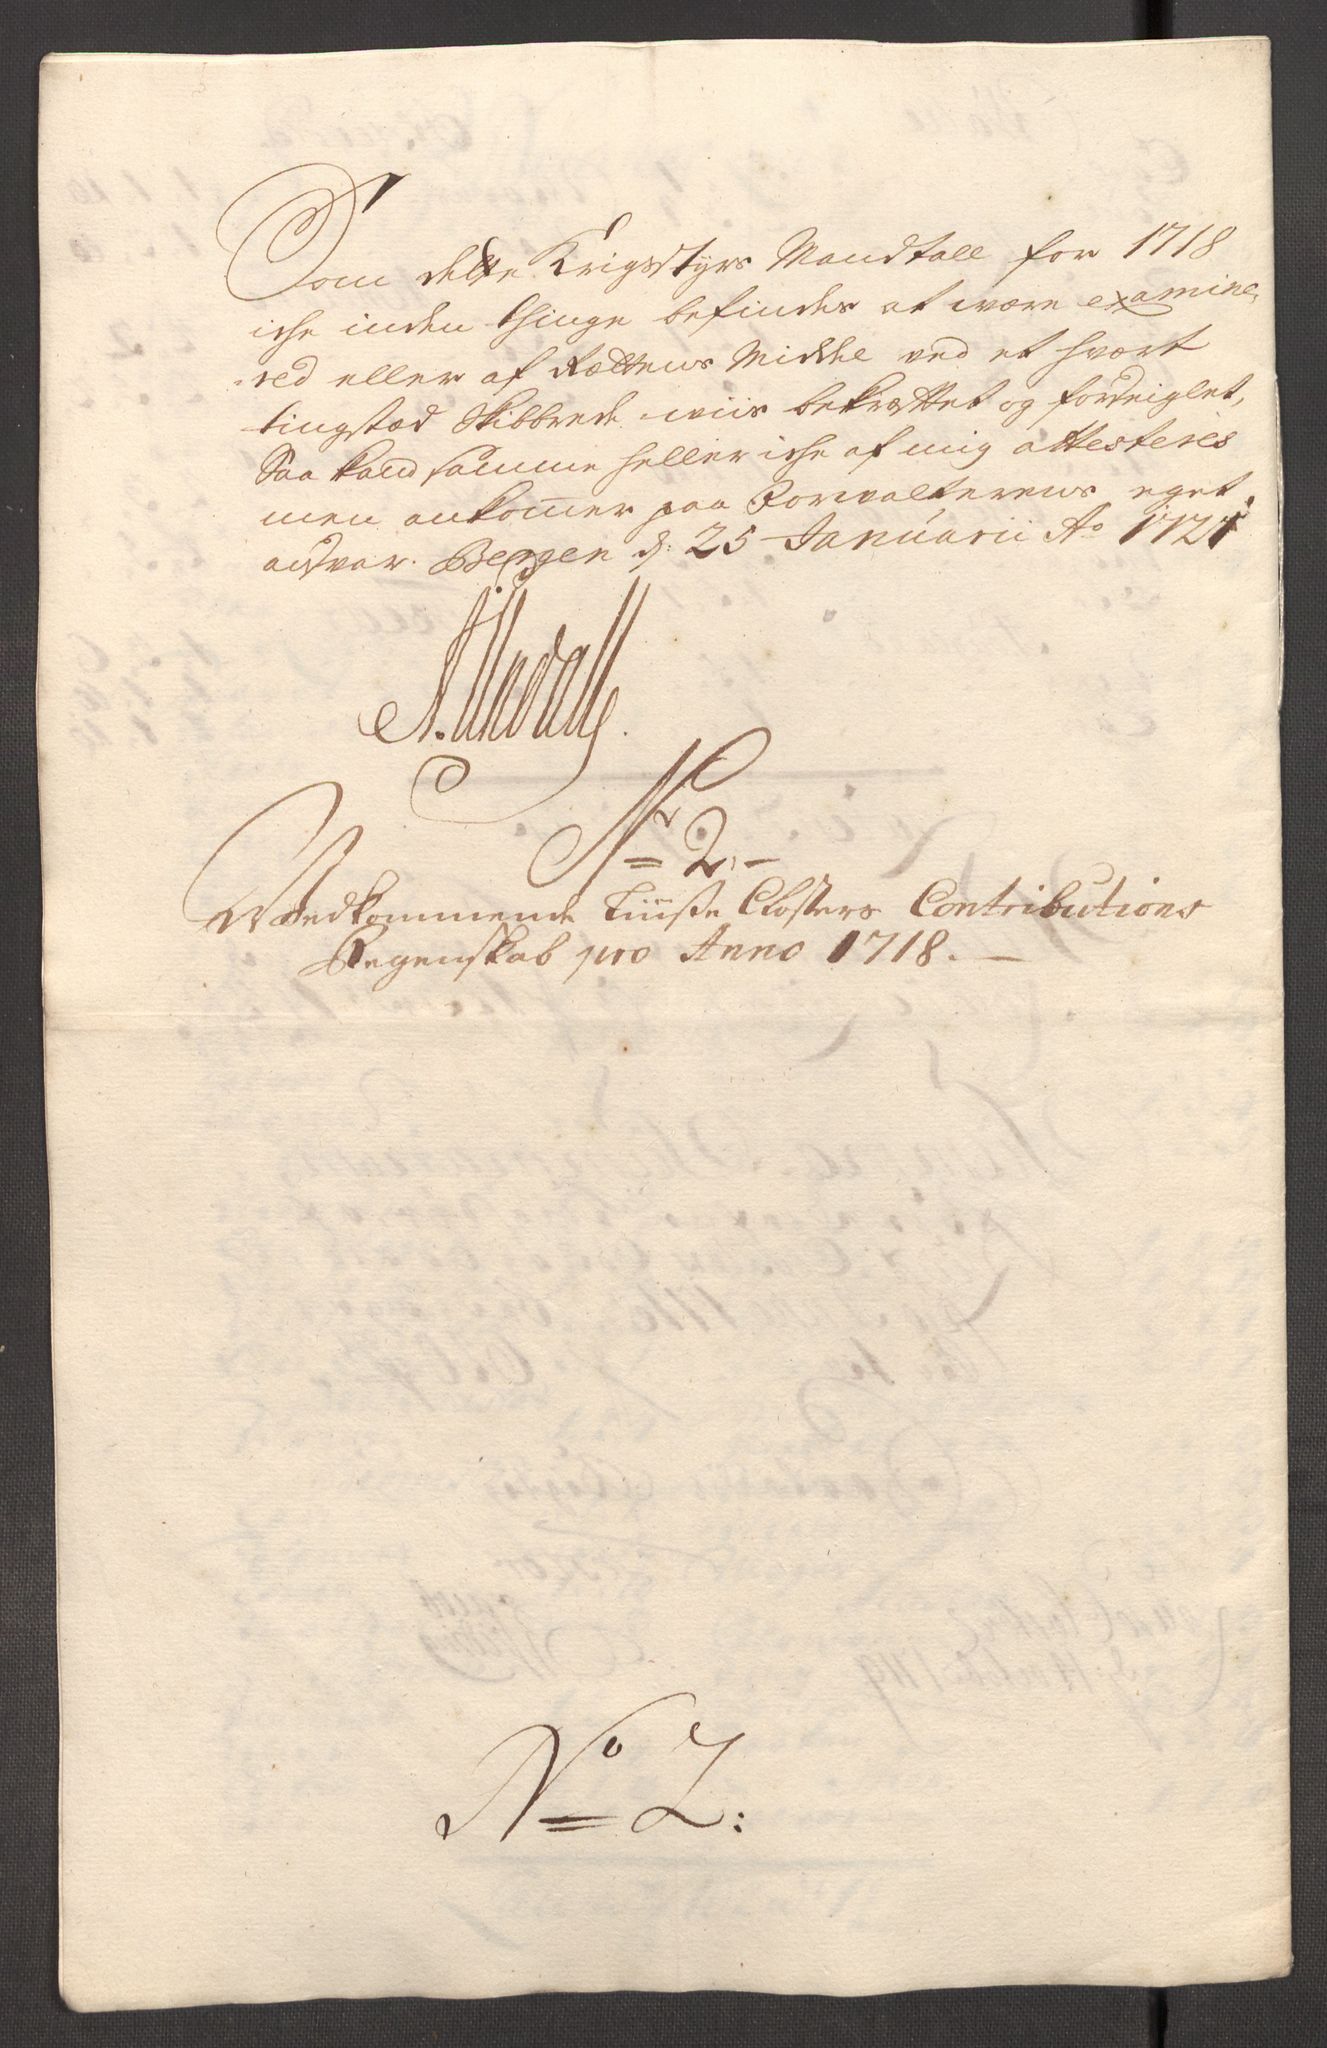 Som dette Krigsstyrs Mandtall for 1718
iche inden Thinge befindes at være examine,,
red eller af Rættens Midle ved et hvært
tingstæd Skibbrede wiis bekræftet og forseiglet,
Saa kand samme heller iche af mig attesteres
men ankom̄er paa Forvalterens eget
ansvar. Bergen d: 25 Januarii Ao 1721
Nr 2,-
Wedkommende Lüsse Closters Contributions
Regenskab pro Anno 1718.-
No 2: